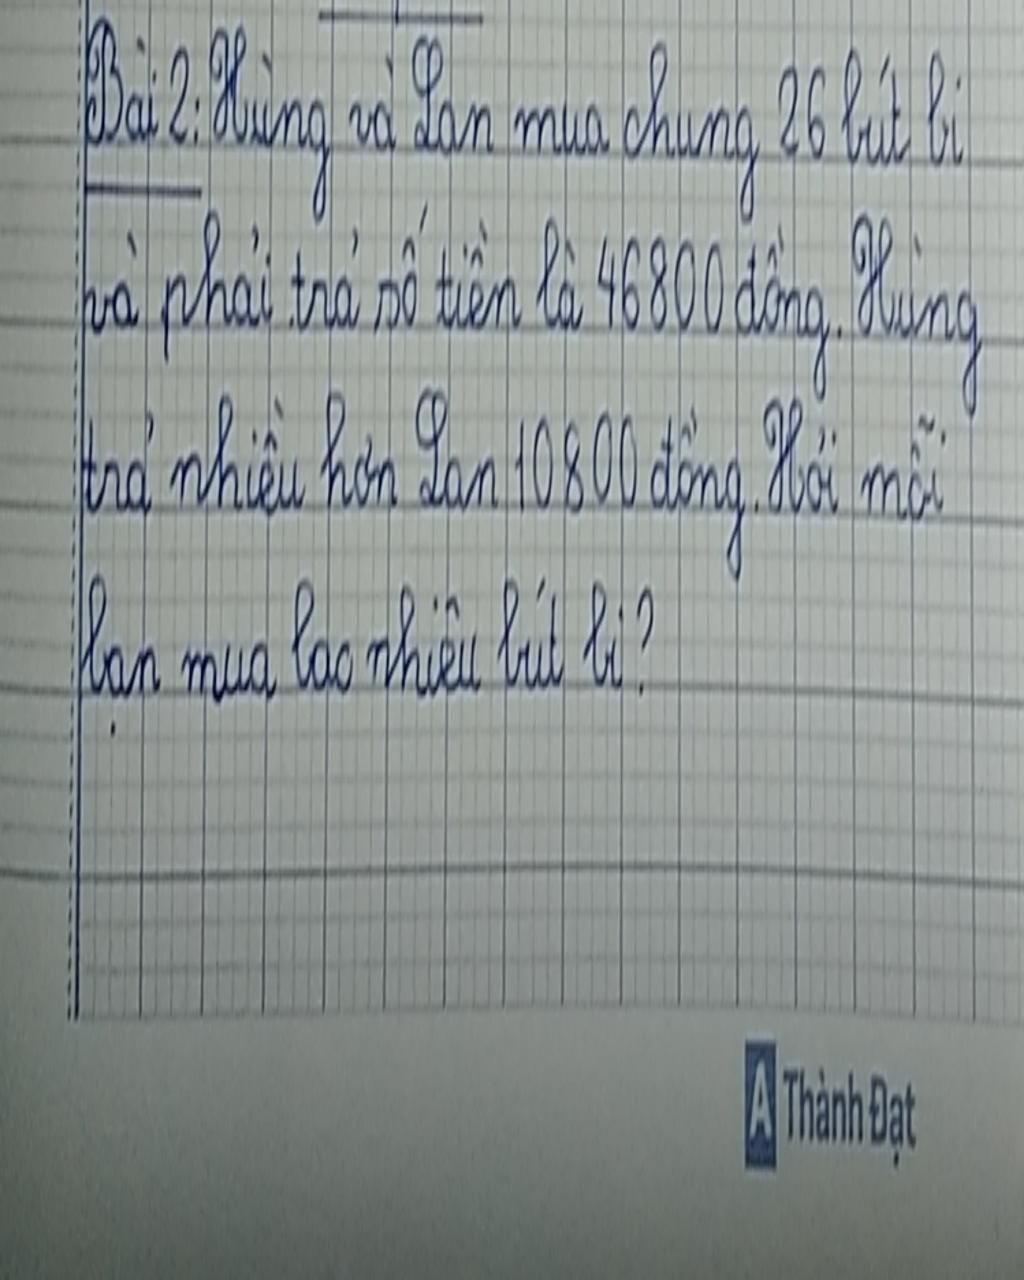 Bài 2: Hùng và Lan mua chung 26 bút bi
và phải trả số tiền là 46800 đồng. Hùng
trả nhiều hơn Lan 10800 đồng. Hỏi mỗi
bạn mua bao nhiêu bút bi?
A Thành Đạt